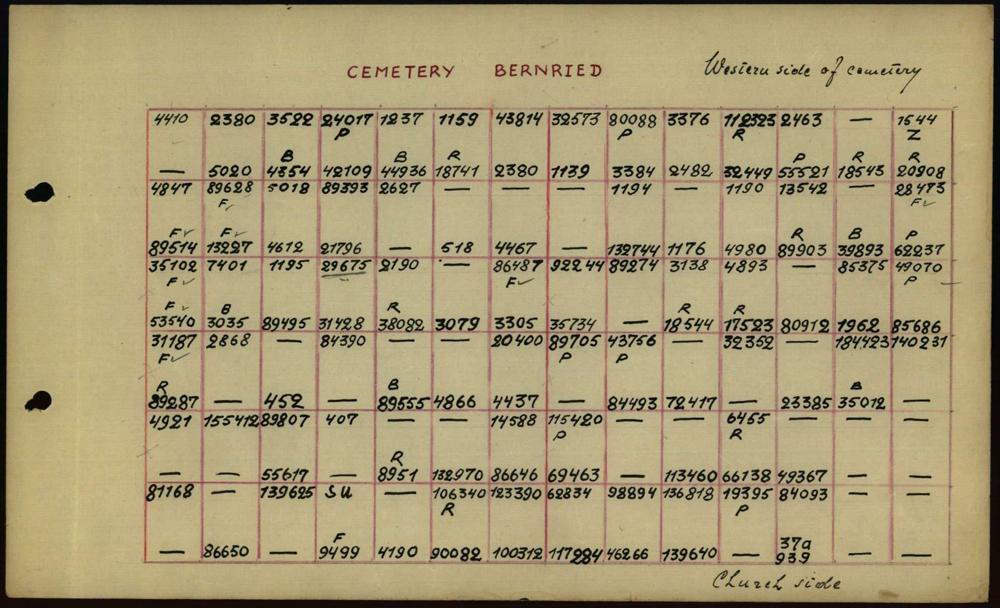 CEMETERY BERNRIED Western side of cemetery
4410 2380 3522 24017 1237 1159 43814 32573 80088 3376 112323 2463 — 1544
P P R Z
B B R P R R
— 5020 4354 42109 44936 18741 2380 1139 3384 2482 32449 55521 18543 20908
4847 89628 5018 89393 2627 — — — 1194 — 1190 13542 — 28473
F✓ F✓
F✓ F✓ R B P
89514 13227 4612 21796 — 518 4467 — 132744 1176 4980 89903 39893 62237
35102 7401 1195 29675 2190 — 86487 92244 89274 3138 4893 — 85375 49070
F✓ F✓ P
F✓ B R R R
53540 3035 89495 31428 38082 3079 3305 35734 — 18544 17523 80912 1962 85686
31187 2868 — 84390 — — 20400 89705 43756 — 32352 — 184423 140231
F✓ P P
R B B
89287 — 452 — 89555 4866 4437 — 84493 72417 — 23385 35012 —
4921 155412 89807 407 — — 14588 115420 — — 6455 — — —
P R
R
— — 55617 — 8951 132970 86646 69463 — 113460 66138 49367 — —
81168 — 139625 SU — 106340 123390 62834 98894 136818 19395 84093 — —
R P
F 37a
— 86650 — 9499 4190 90082 100312 117984 46266 139640 — 939 — —
Church side